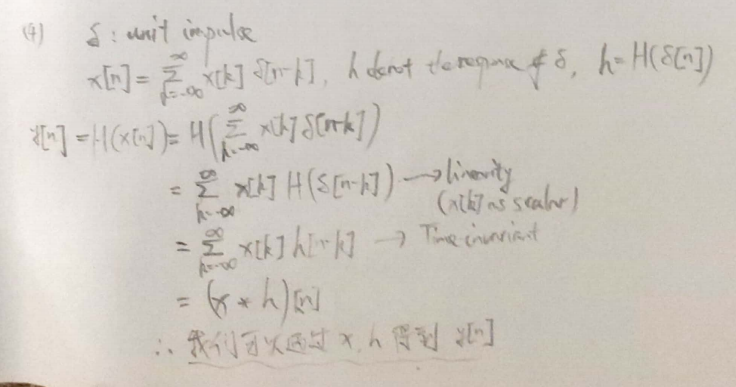 (4) δ : unit impulse
x[n] = ∑_{k=-∞}^{∞} x[k] δ[n-k], h denot the response of δ, h = H(δ[n])
y[n] = H(x[n]) = H(∑_{k=-∞}^{∞} x[k] δ[n-k])
= ∑_{k=-∞}^{∞} x[k] H(δ[n-k]) → linearity
(x[k] as scalar)
= ∑_{k=-∞}^{∞} x[k] h[n-k] → Time invariant
= (x * h)[n]
∴ 我们可以通过 x, h 得到 y[n]